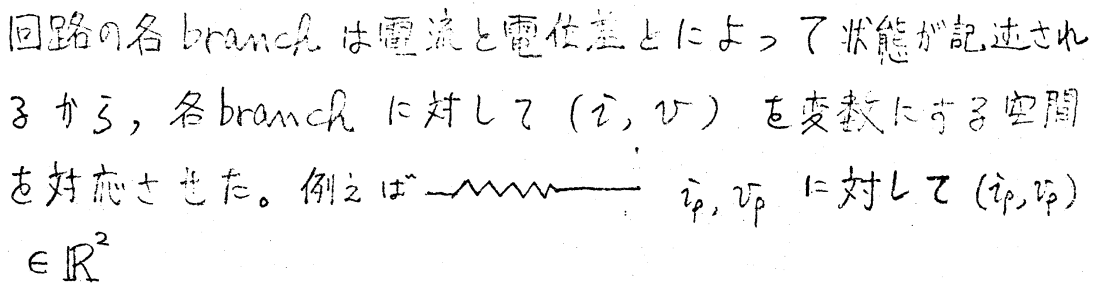 回路の各 branch は電流と電位差とによって状態が記述され
るから, 各 branch に対して (i, v) を変数にする空間
を対応させた。例えば i_ρ, v_ρ に対して (i_ρ, v_ρ)
∈ ℝ²